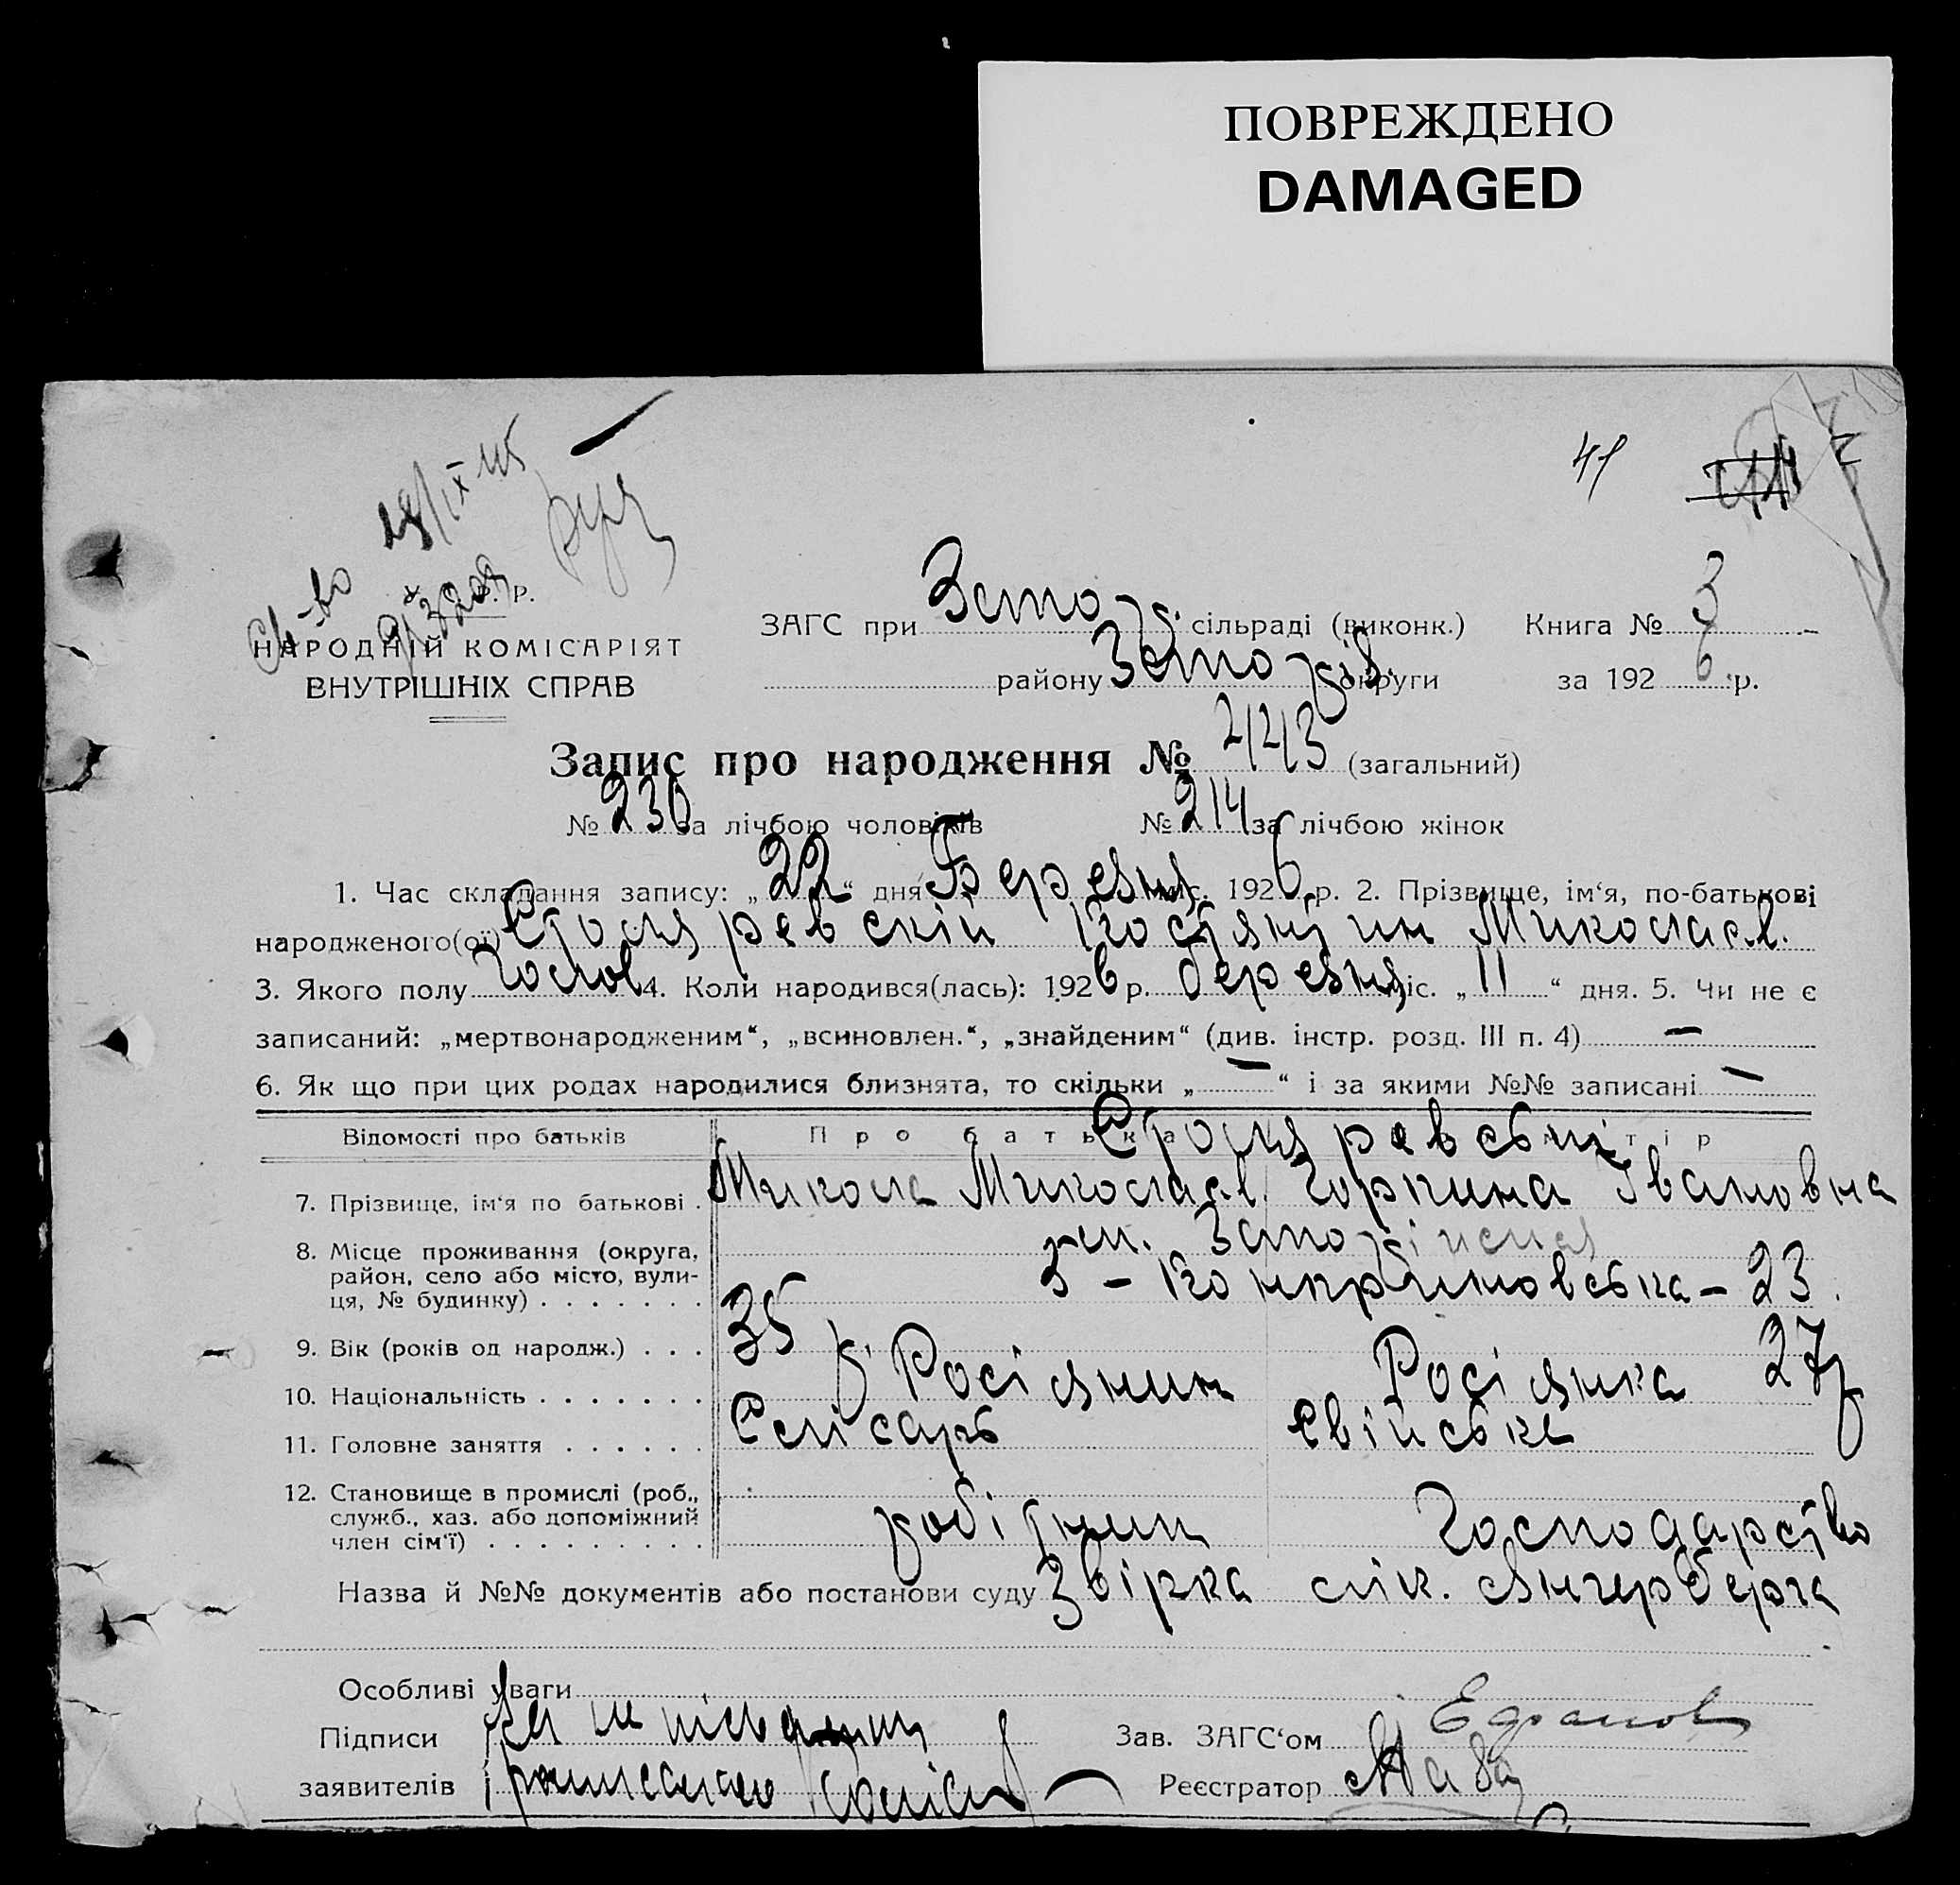 ПОВРЕЖДЕНО
DAMAGED
41
Св-во 28/IX-45
Р.
НАРОДНІЙ КОМІСАРІЯТ
ВНУТРІШНІХ СПРАВ
ЗАГС при сільраді (виконк.) Книга № 3
району округи за 1926 р.
Запис про народження № 443 (загальний)
№ 230 за лічбою чоловіків № 214 за лічбою жінок
1. Час складання запису: „22“ дня Березня міс. 1926 р. 2. Прізвище, ім‘я, по-батькові
народженого(ої) Костянтин Миколаєв.
3. Якого полу Чолов 4. Коли народився(лась): 1926 р. березня міс. „11“ дня. 5. Чи не є
записаний: „мертвонародженим“, „всиновлен.“, „знайденим“ (див. інстр. розд. III п. 4) —
6. Як що при цих родах народилися близнята, то скільки „—“ і за якими №№ записані —
Відомості про батьків Про батька матір
7. Прізвище, ім‘я по батькові . Микола Миколаєв. Івановна
8. Місце проживання (округа,
район, село або місто, вули-
ця, № будинку) . . . . . . . 23.
9. Вік (років од народж.) . . . 35 р. 27
10. Національність . . . . . . . Росіянин Росіянка
11. Головне заняття . . . . . . Слісарь свійське
12. Становище в промислі (роб.,
служб., хаз. або допоміжний
член сім‘ї) . . . . . . . . . робітник Господарство
Назва й №№ документів або постанови суду Звірка лік.
Особливі уваги
Підписи Зав. ЗАГС‘ом
заявителів Реєстратор